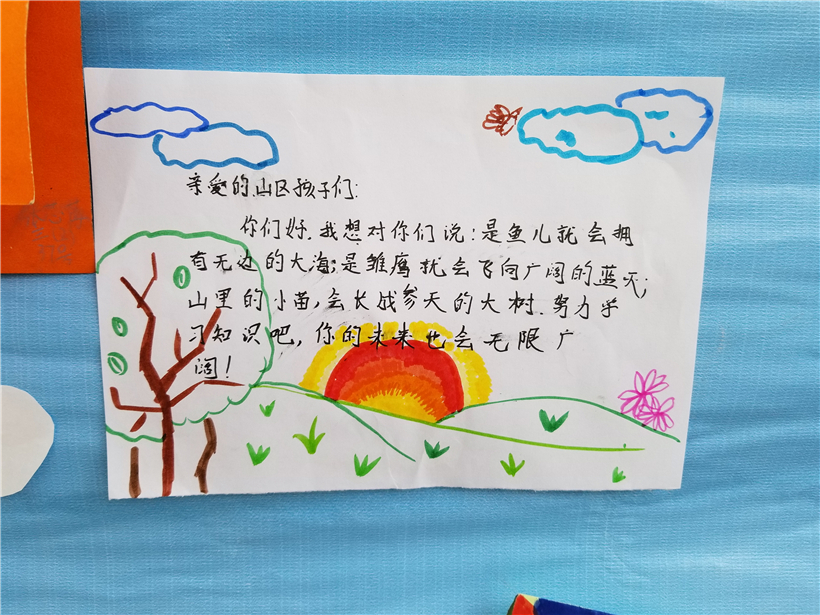 亲爱的山区孩子们:
你们好.我想对你们说:是鱼儿就会拥
有无边的大海;是雏鹰就会飞向广阔的蓝天;
山里的小苗,会长成参天的大树.努力学
习知识吧,你的未来也会无限广
阔!